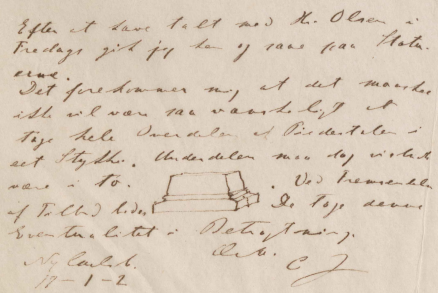 Efter at have talt med Hr. Olsen i
Fredags gik jeg hen og saae paa Statu-
erne.
Det forekommer mig at det maaskee
ikke vil være saa vanskeligt at
tage hele Overdelen af Piedestalen i
eet Stykke. Underdelen maa dog
være i to. . Ved Fremsendelsen
af Tilbud bedes De tage denne
Eventualitet i Betragtning.
Ny Carlsb.
C J
17-1-2